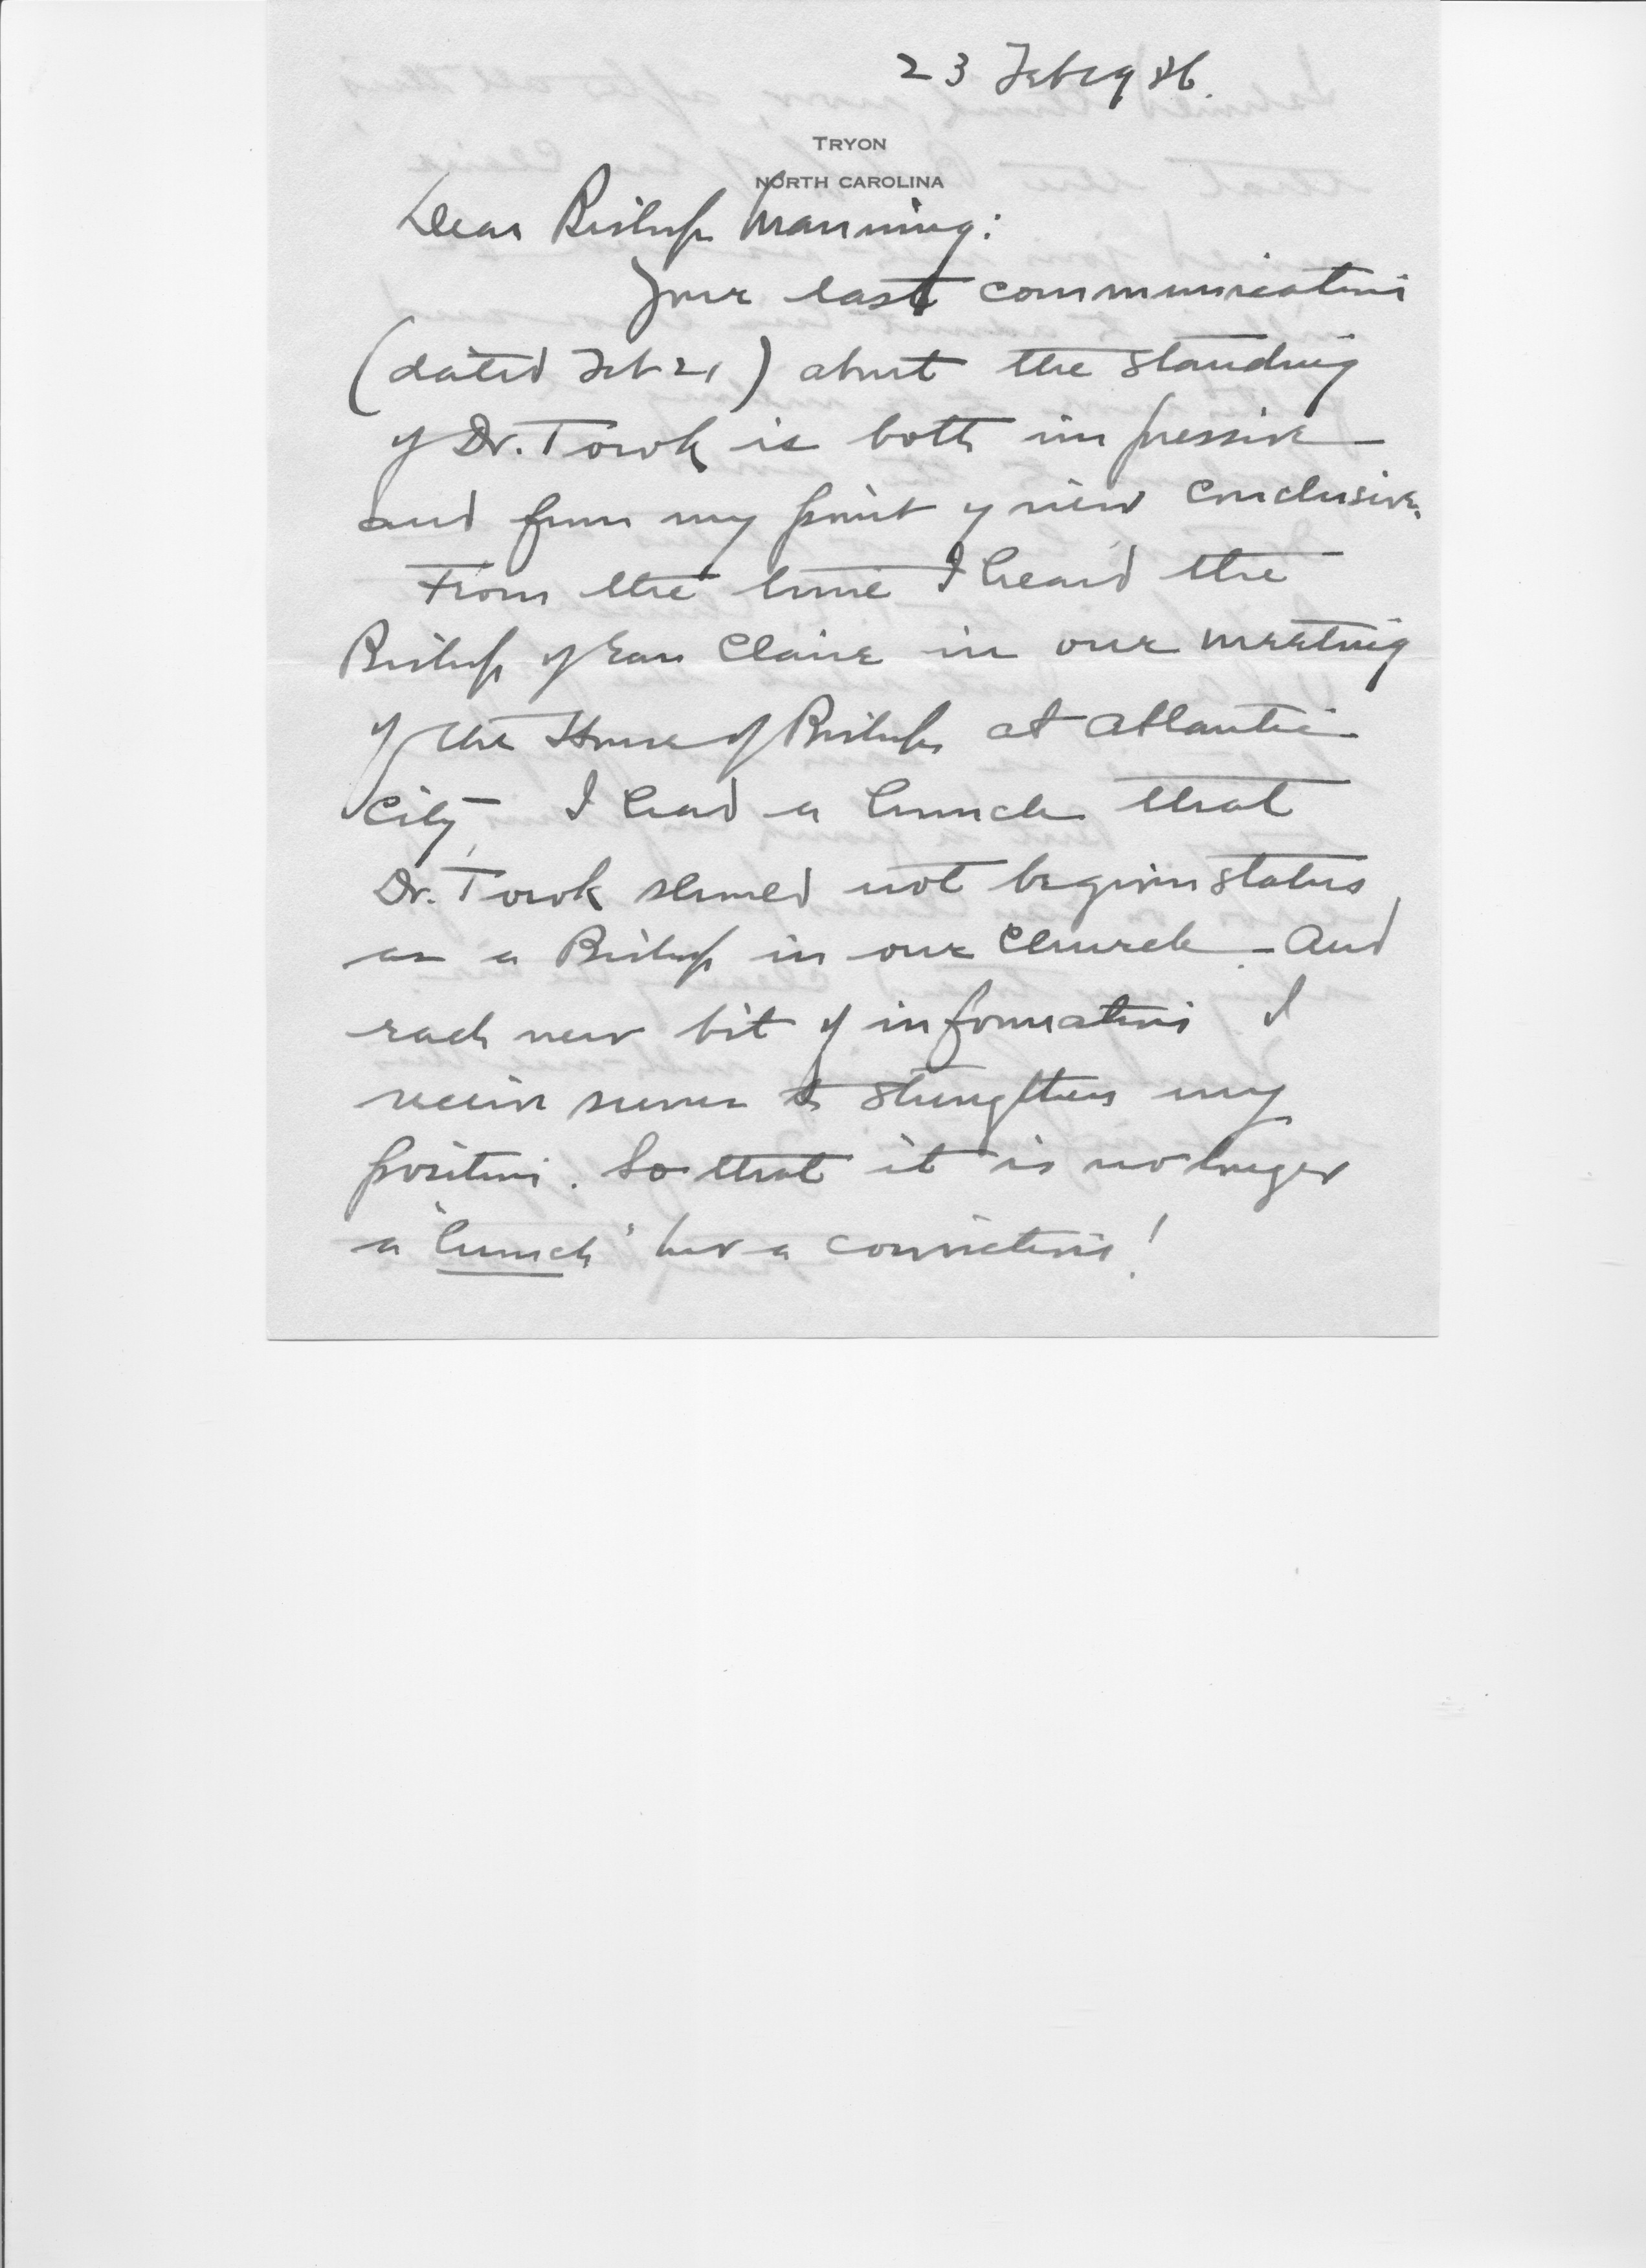 23 Feby 36.
TRYON
NORTH CAROLINA
Dear Bishop Manning:
Your last communication
(dated Feb 21) about the standing
of Dr. Torok is both impressive
and from my point of view conclusive.
From the time I heard the
Bishop of Eau Claire in our meeting
of the House of Bishops at Atlantic
City, I had a hunch that
Dr. Torok should not be given status
as a Bishop in our Church - And
each new bit of information I
receive serves to strengthen my
position. So that it is no longer
a 'hunch' but a conviction!